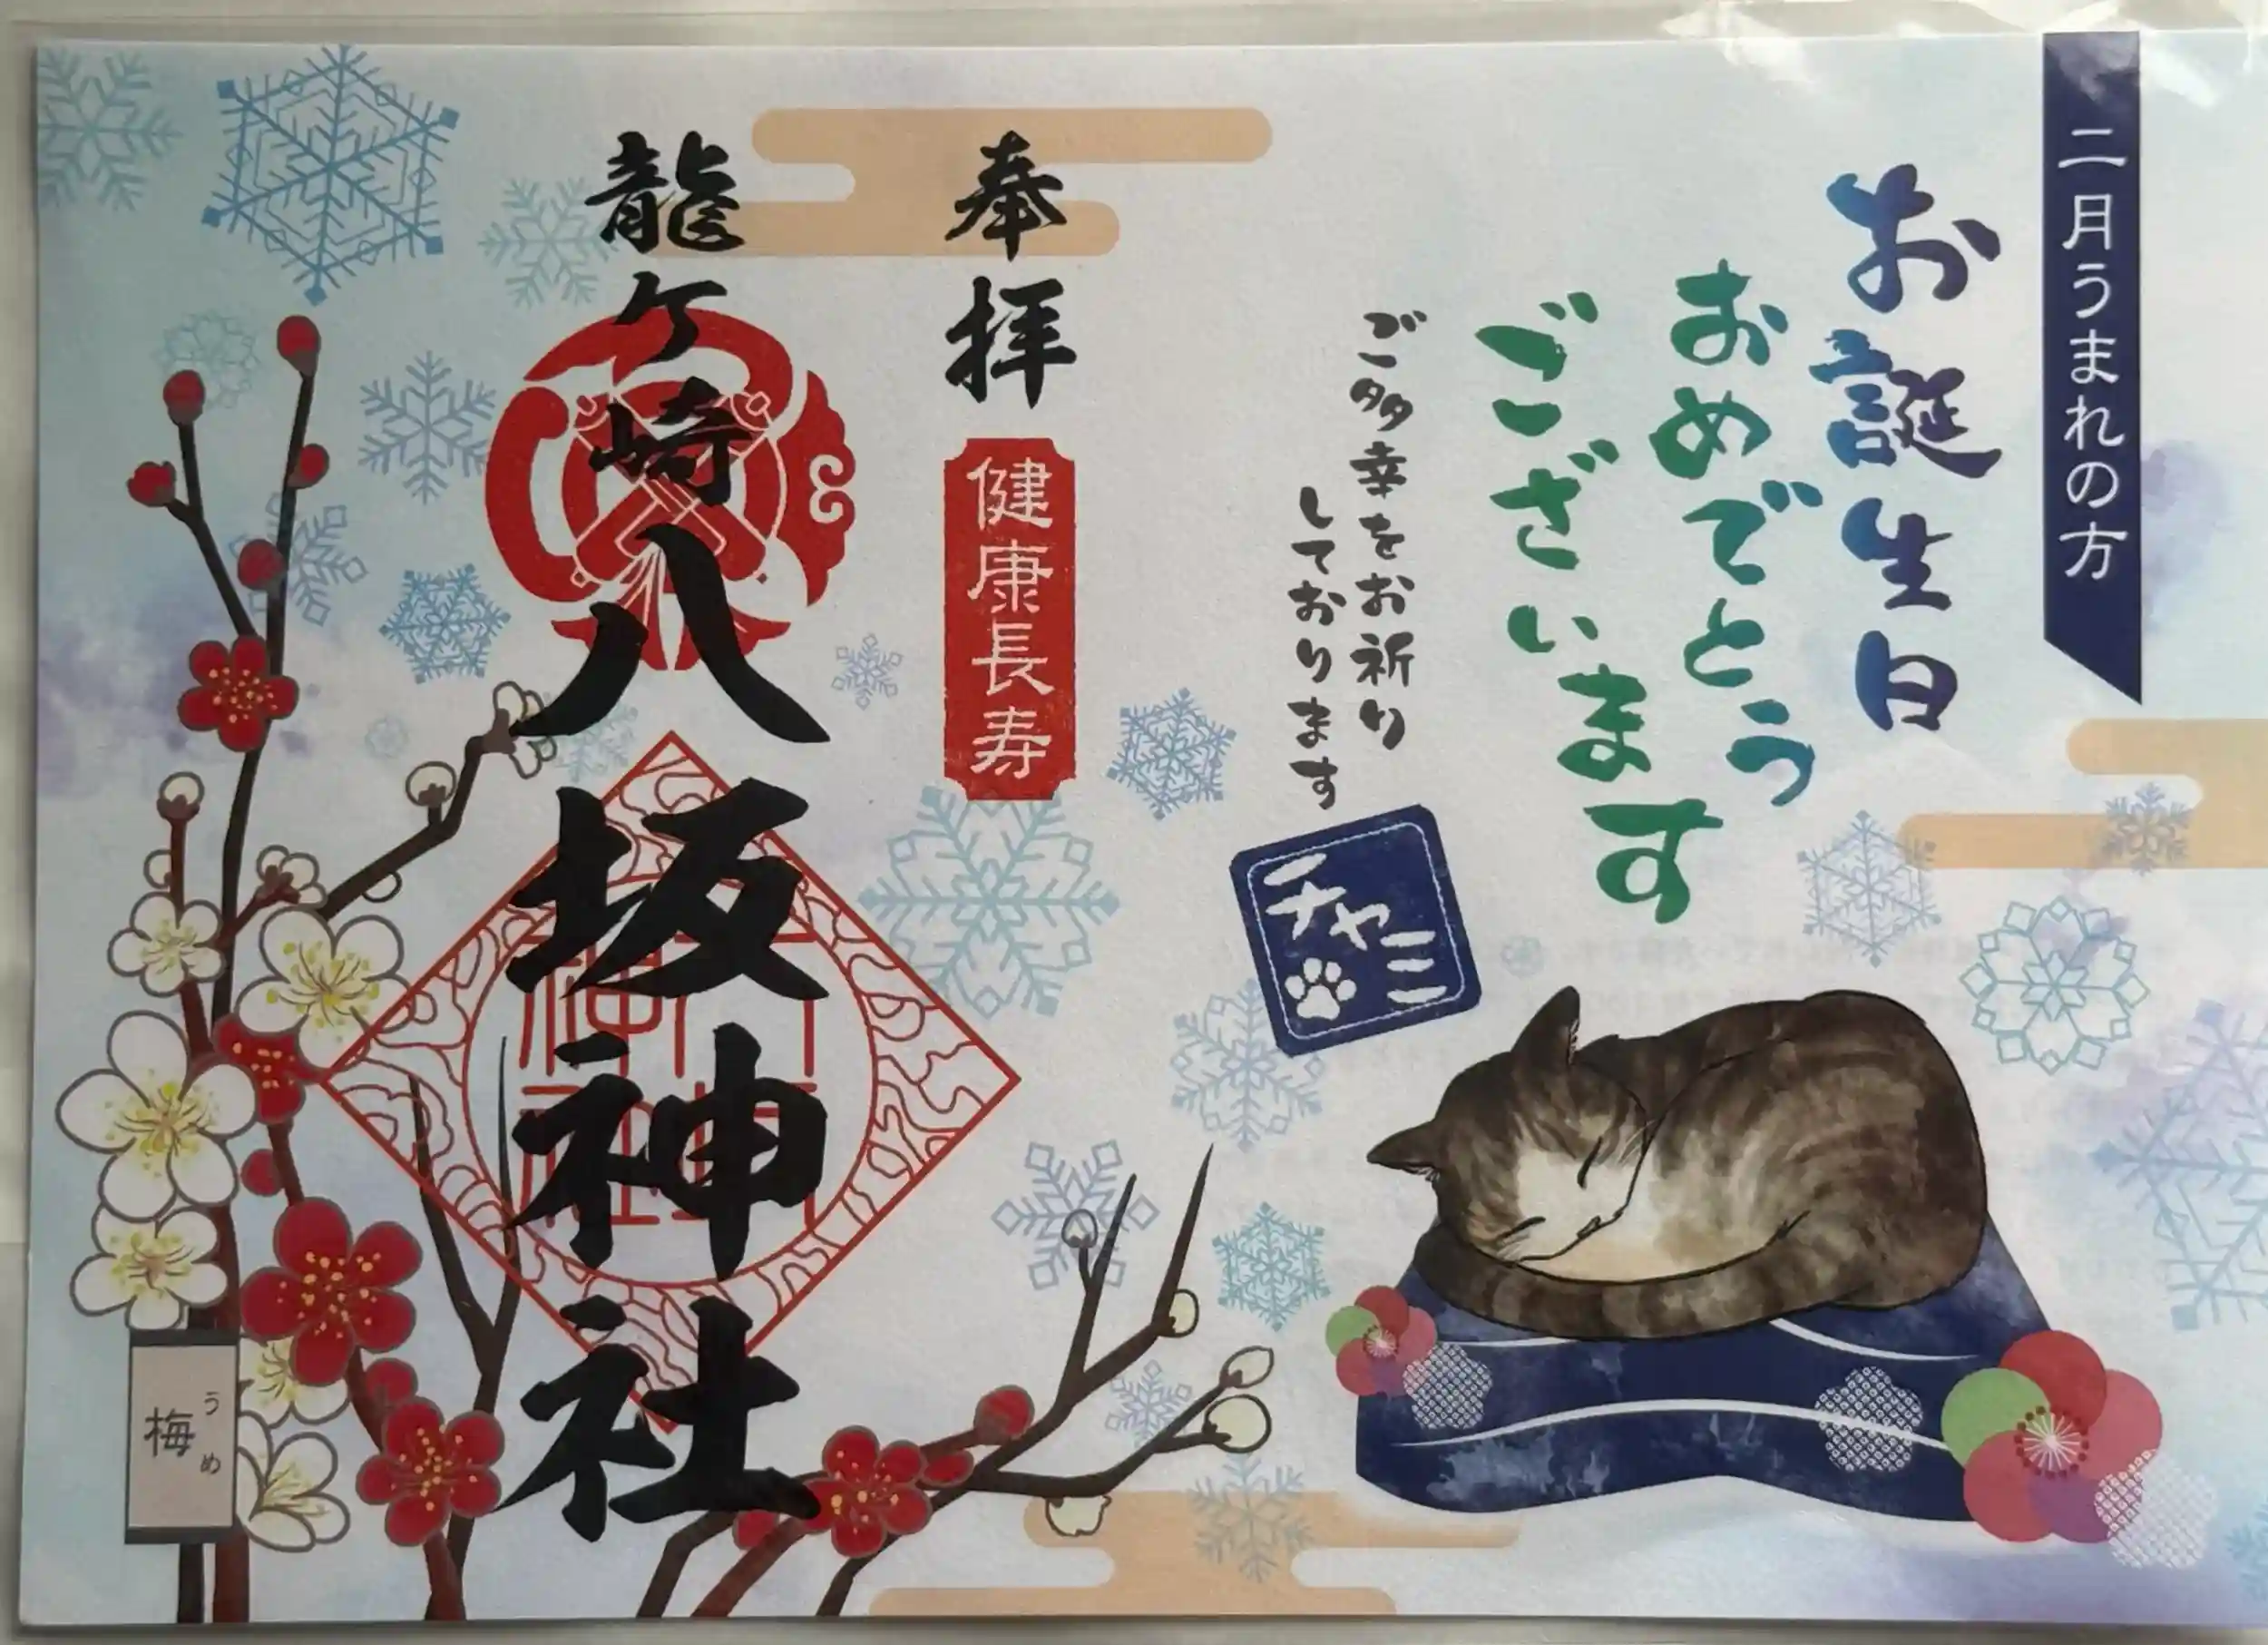 二月うまれの方
お誕生日
おめでとう
ございます
ご多幸をお祈り
しております
チャミ
奉拝
健康長寿
龍ケ崎八坂神社
梅
うめ